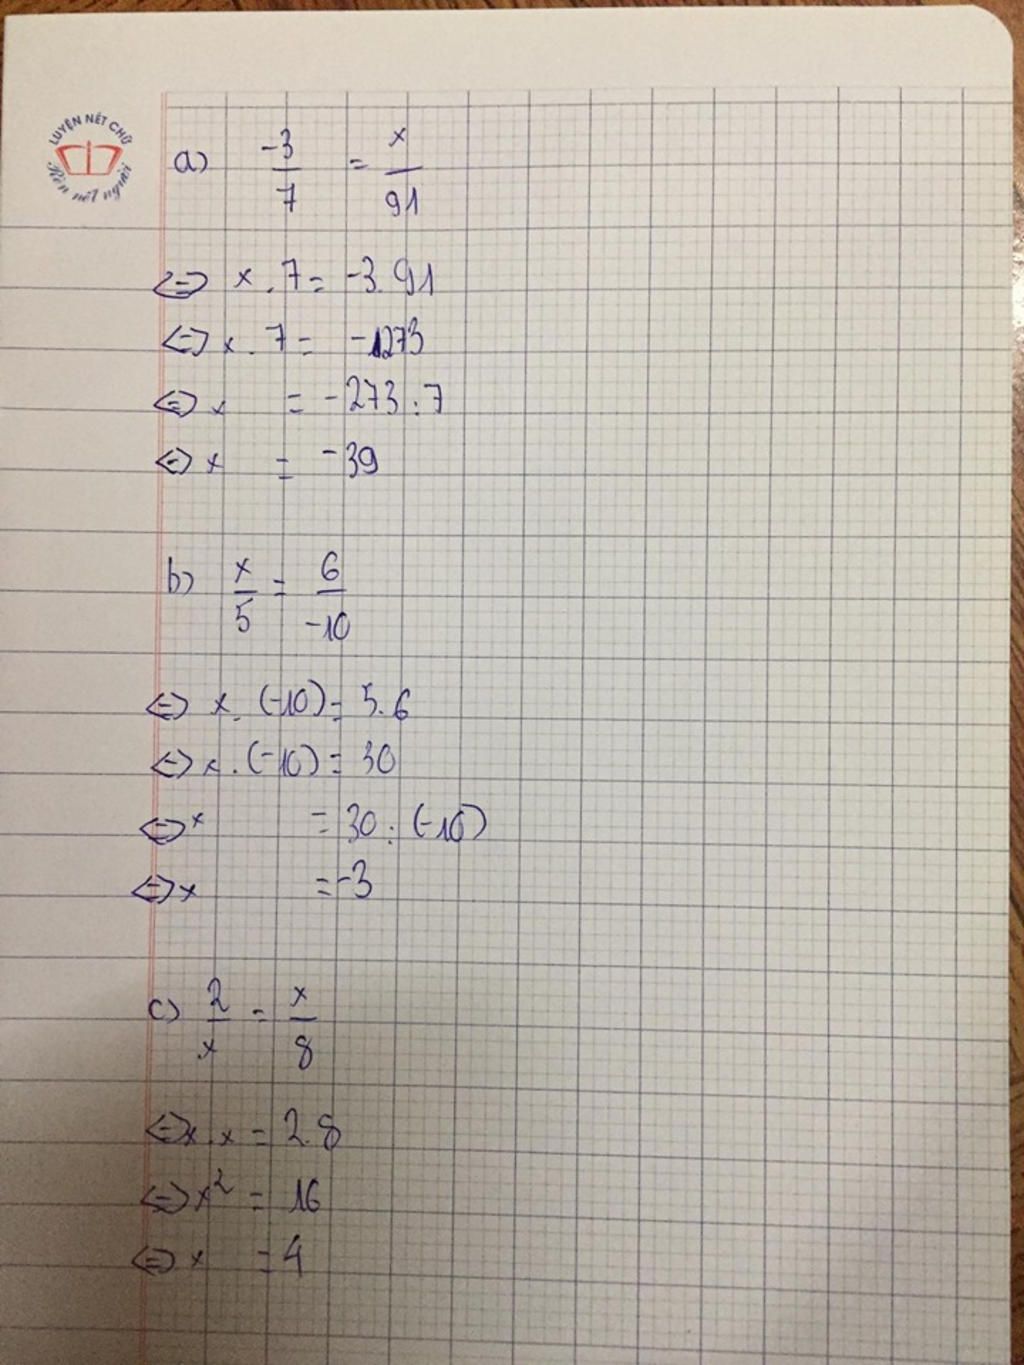 LUYỆN NÉT CHỮ
Rèn nết người
a) -3/7 = x/91
<=> x . 7 = -3.91
<=> x . 7 = -1273
<=> x = -273 : 7
<=> x = -39
b) x/5 = 6/-10
<=> x. (-10) = 5.6
<=> x . (-10) = 30
<=> x = 30 : (-10)
<=> x = -3
c) 2/x = x/8
<=> x.x = 2.8
<=> x² = 16
<=> x = 4